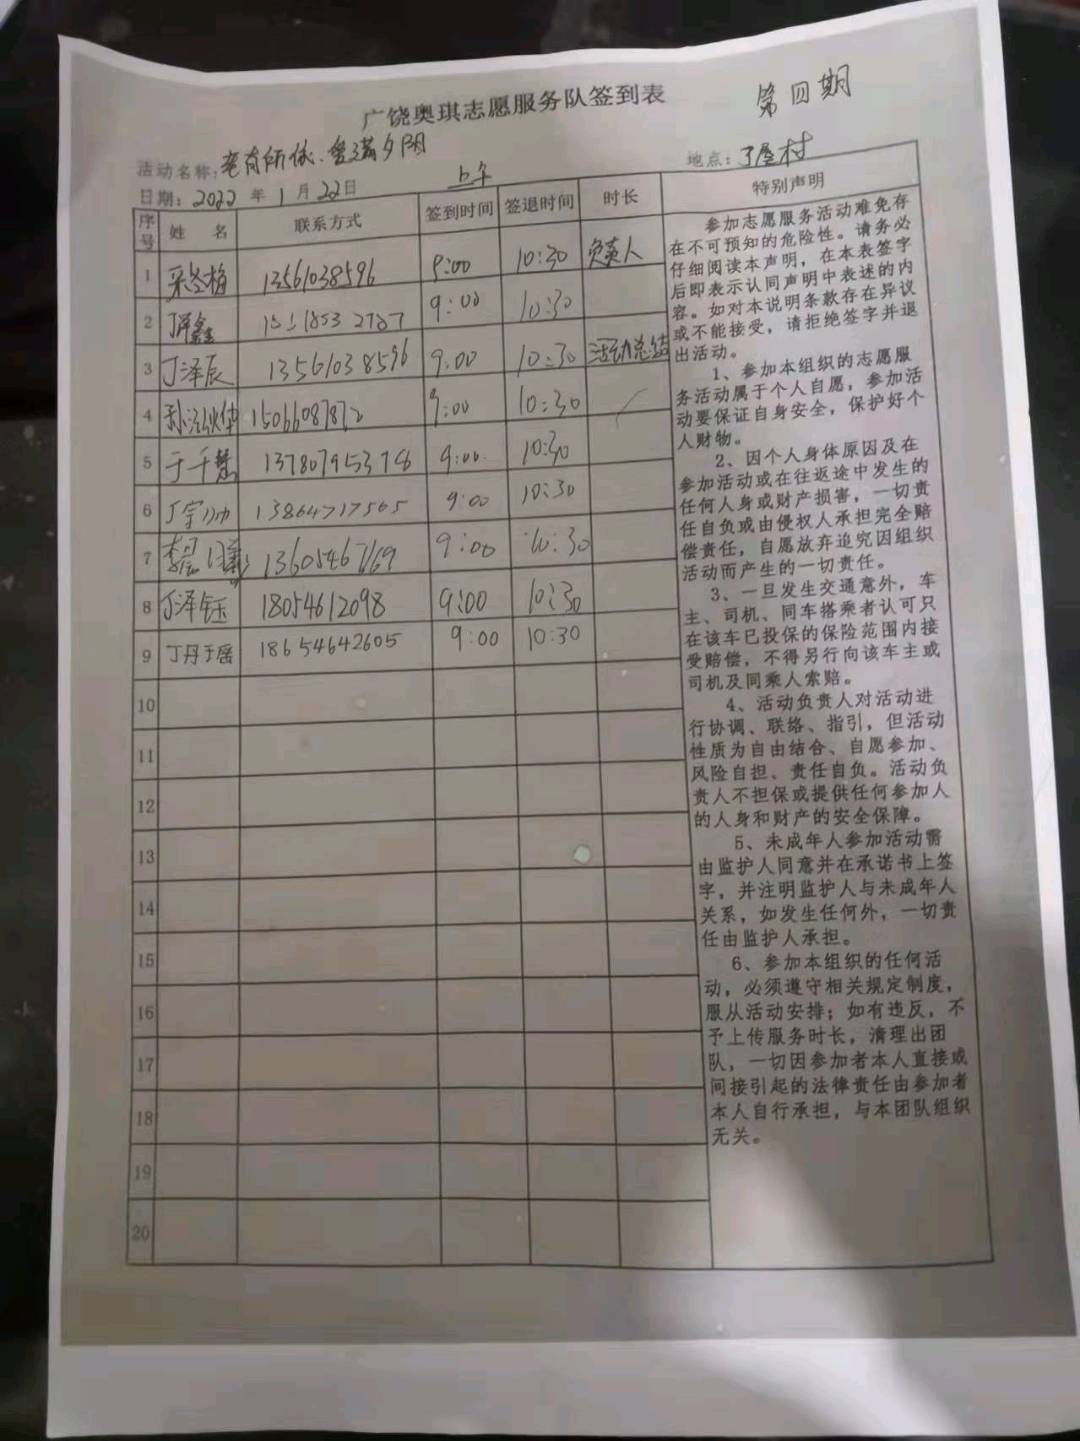 广饶奥琪志愿服务队签到表
第四期
活动名称：老有所依.爱满夕阳
地点：丁屋村
日期：2022年1月22日
上午
序号 姓 名 联系方式 签到时间 签退时间 时长 特别声明
1 13561038596 9:00 10:30 负责人
2 9:00 10:30
3 丁泽辰 13561038596 9:00 10:30 活动总结
4 15066087872 9:00 10:30
5 于千慧 9:00 10:30
6 丁宇帅 13864717565 9:00 10:30
7 9:00 10:30
8 丁泽钰 18054612098 9:00 10:30
9 丁丹 18654642605 9:00 10:30
10
11
12
13
14
15
16
17
18
19
20
参加志愿服务活动难免存
在不可预知的危险性。请务必
仔细阅读本声明，在本表签字
后即表示认同声明中表述的内
容。如对本说明条款存在异议
或不能接受，请拒绝签字并退
出活动。
1、参加本组织的志愿服
务活动属于个人自愿，参加活
动要保证自身安全，保护好个
人财物。
2、因个人身体原因及在
参加活动或在往返途中发生的
任何人身或财产损害，一切责
任自负或由侵权人承担完全赔
偿责任，自愿放弃追究因组织
活动而产生的一切责任。
3、一旦发生交通意外，车
主、司机、同车搭乘者认可只
在该车已投保的保险范围内接
受赔偿，不得另行向该车主或
司机及同乘人索赔。
4、活动负责人对活动进
行协调、联络、指引，但活动
性质为自由结合、自愿参加、
风险自担、责任自负。活动负
责人不担保或提供任何参加人
的人身和财产的安全保障。
5、未成年人参加活动需
由监护人同意并在承诺书上签
字，并注明监护人与未成年人
关系，如发生任何外，一切责
任由监护人承担。
6、参加本组织的任何活
动，必须遵守相关规定制度，
服从活动安排；如有违反，不
予上传服务时长，清理出团
队，一切因参加者本人直接或
间接引起的法律责任由参加者
本人自行承担，与本团队组织
无关。